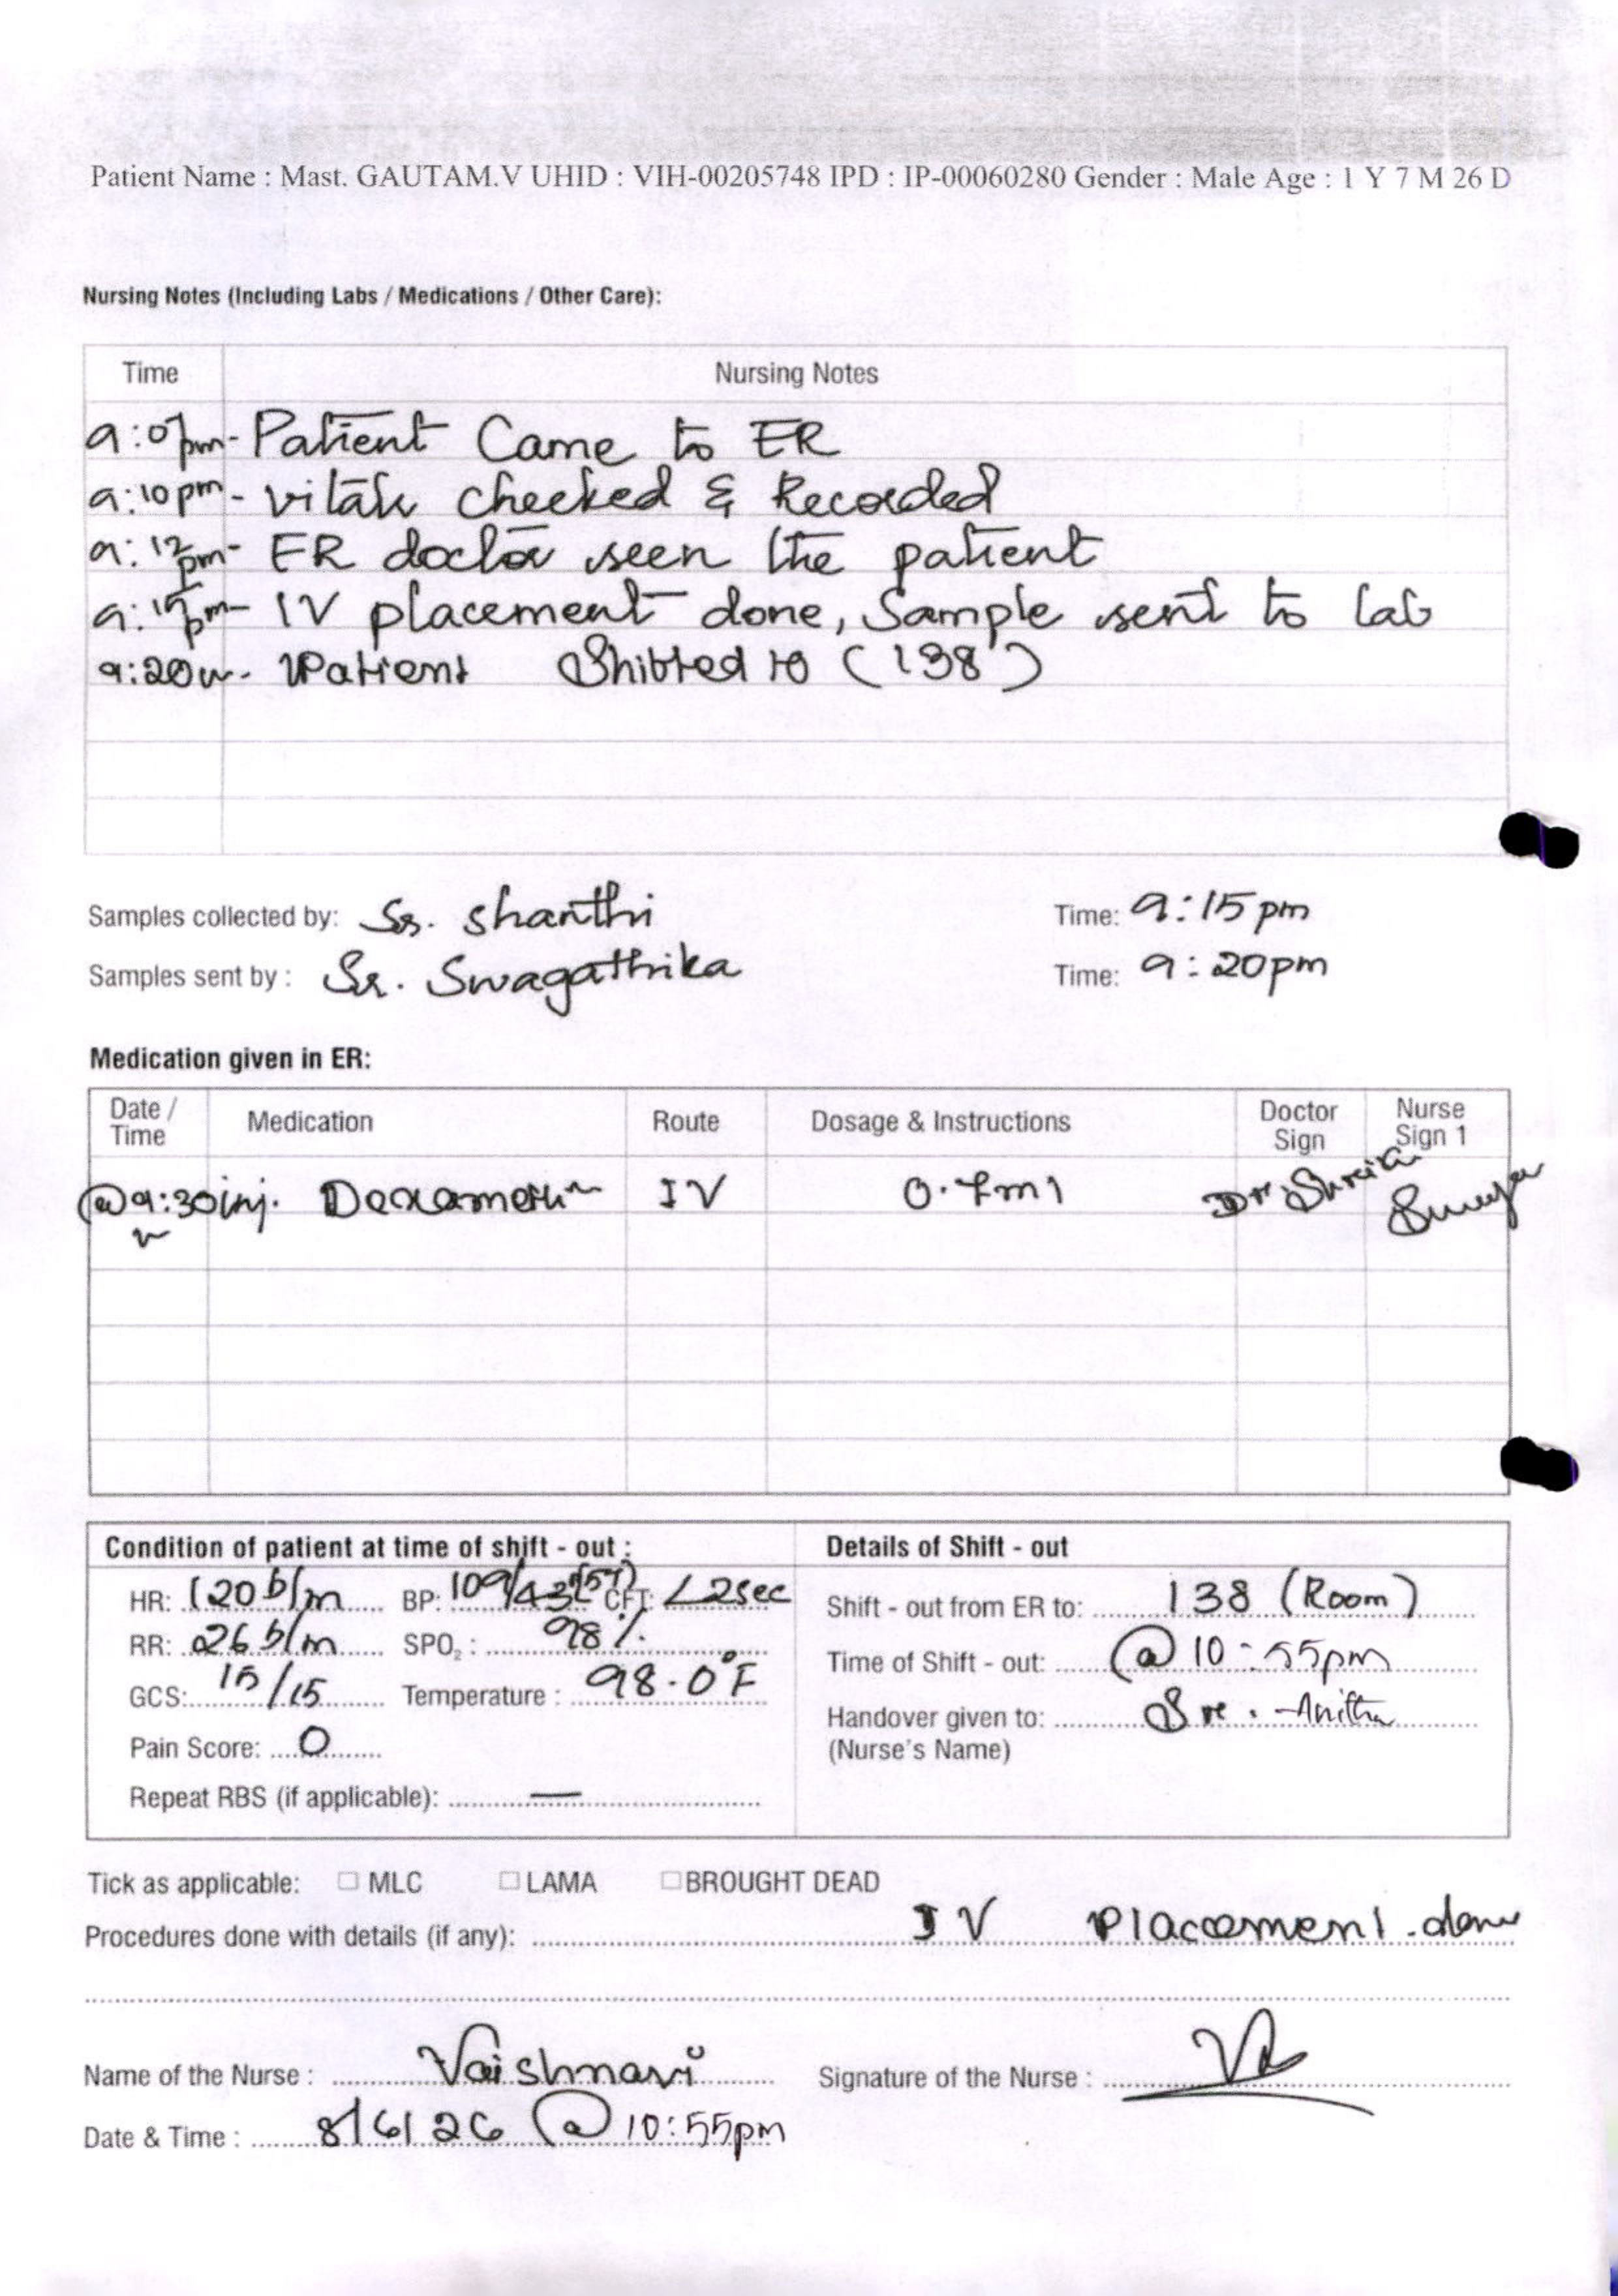 Patient Name : Mast. GAUTAM.V UHID : VIH-00205748 IPD : IP-00060280 Gender : Male Age : 1 Y 7 M 26 D
Nursing Notes (Including Labs / Medications / Other Care):
Time Nursing Notes
Patient Came to ER
9:10pm - vitals checked & Recorded
9:12pm - ER doctor seen the patient
9:15pm - IV placement done, Sample sent to lab
9:20 - Patient Shifted to (138)
Samples collected by: Sr. Shanthi Time: 9:15pm
Samples sent by : Sr. Swagathrika Time: 9:20pm
Medication given in ER:
Date / Time Medication Route Dosage & Instructions Doctor Sign Nurse Sign 1
@9:30 inj. IV Dr.
Condition of patient at time of shift - out : Details of Shift - out
HR: 120 b/m BP: 109/43 CFT: <2sec Shift - out from ER to: 138 (Room)
RR: 26 b/m SPO2 : 98%
Time of Shift - out: @ 10:55pm
GCS: 15/15 Temperature : 98.0°F
Handover given to: Anitha
(Nurse's Name)
Pain Score: 0
Repeat RBS (if applicable): —
Tick as applicable: □ MLC □ LAMA □ BROUGHT DEAD
Procedures done with details (if any): IV Placement.done
Name of the Nurse : Vaishnavi Signature of the Nurse :
Date & Time : 8/6/26 @ 10:55pm